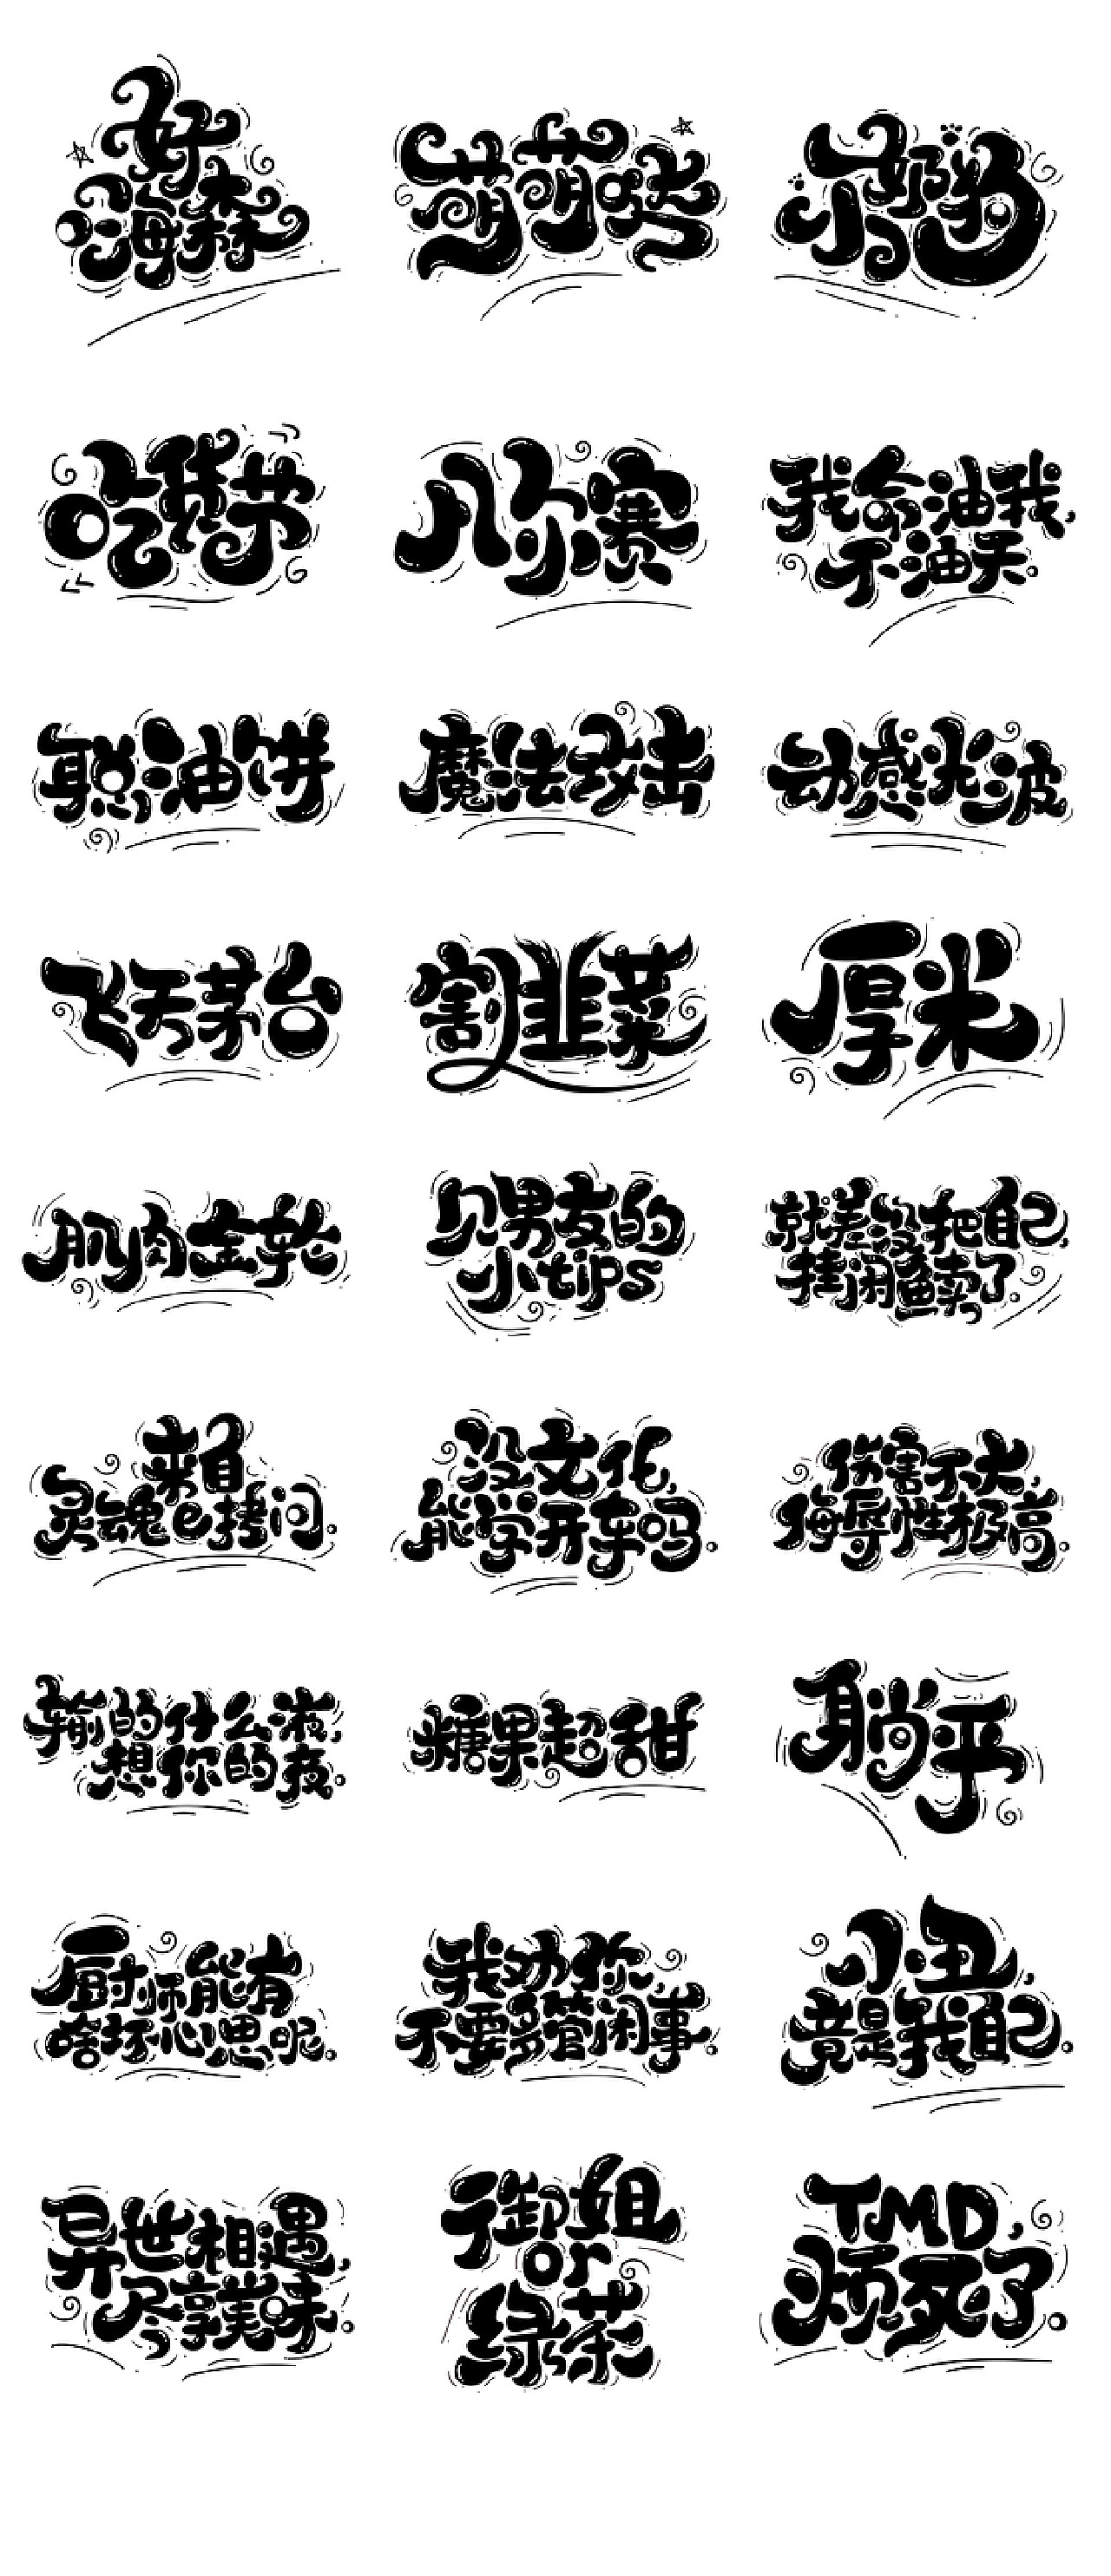 好
嗨森
萌萌哒
小奶狗
吃货节
凡尔赛
我命油我,
不油天。
聪油饼
魔法攻击
动感光波
飞天茅台
割韭菜
厚米
肌肉金轮
见男友的
小tips
就差没把自己,
挂闲鱼卖了。
来自
灵魂e拷问。
没文化,
能学开车吗。
伤害不大,
侮辱性极高。
输的什么液,
想你的夜。
糖果超甜
躺平
厨师能有
啥坏心思呢。
我劝你,
不要多管闲事。
小丑,
竟是我自己。
异世相遇,
尽享美味。
御姐
or
绿茶
TMD,
烦死了。